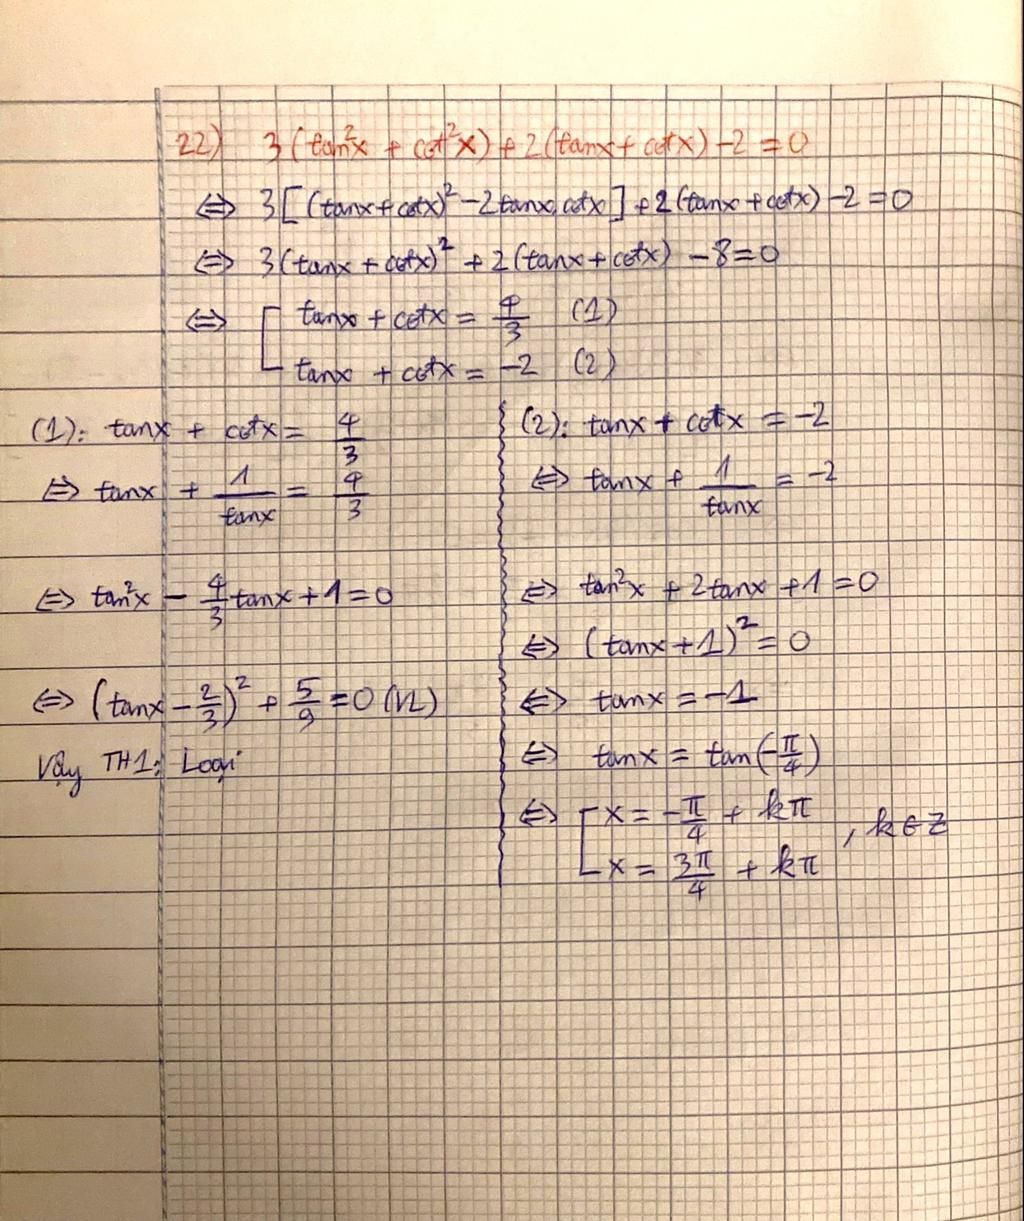 22) 3(tan²x + cot²x) + 2(tanx + cotx) - 2 = 0
⇔ 3[(tanx + cotx)² - 2tanx.cotx] + 2(tanx + cotx) - 2 = 0
⇔ 3(tanx + cotx)² + 2(tanx + cotx) - 8 = 0
⇔ [ tanx + cotx = 4/3 (1)
tanx + cotx = -2 (2)
(1): tanx + cotx = 4/3
⇔ tanx + 1/tanx = 4/3
⇔ tan²x - 4/3 tanx + 1 = 0
⇔ (tanx - 2/3)² + 5/9 = 0 (VL)
Vậy TH1: Loại
(2): tanx + cotx = -2
⇔ tanx + 1/tanx = -2
⇔ tan²x + 2tanx + 1 = 0
⇔ (tanx + 1)² = 0
⇔ tanx = -1
⇔ tanx = tan(-π/4)
⇔ [ x = -π/4 + kπ
x = 3π/4 + kπ , k ∈ Z